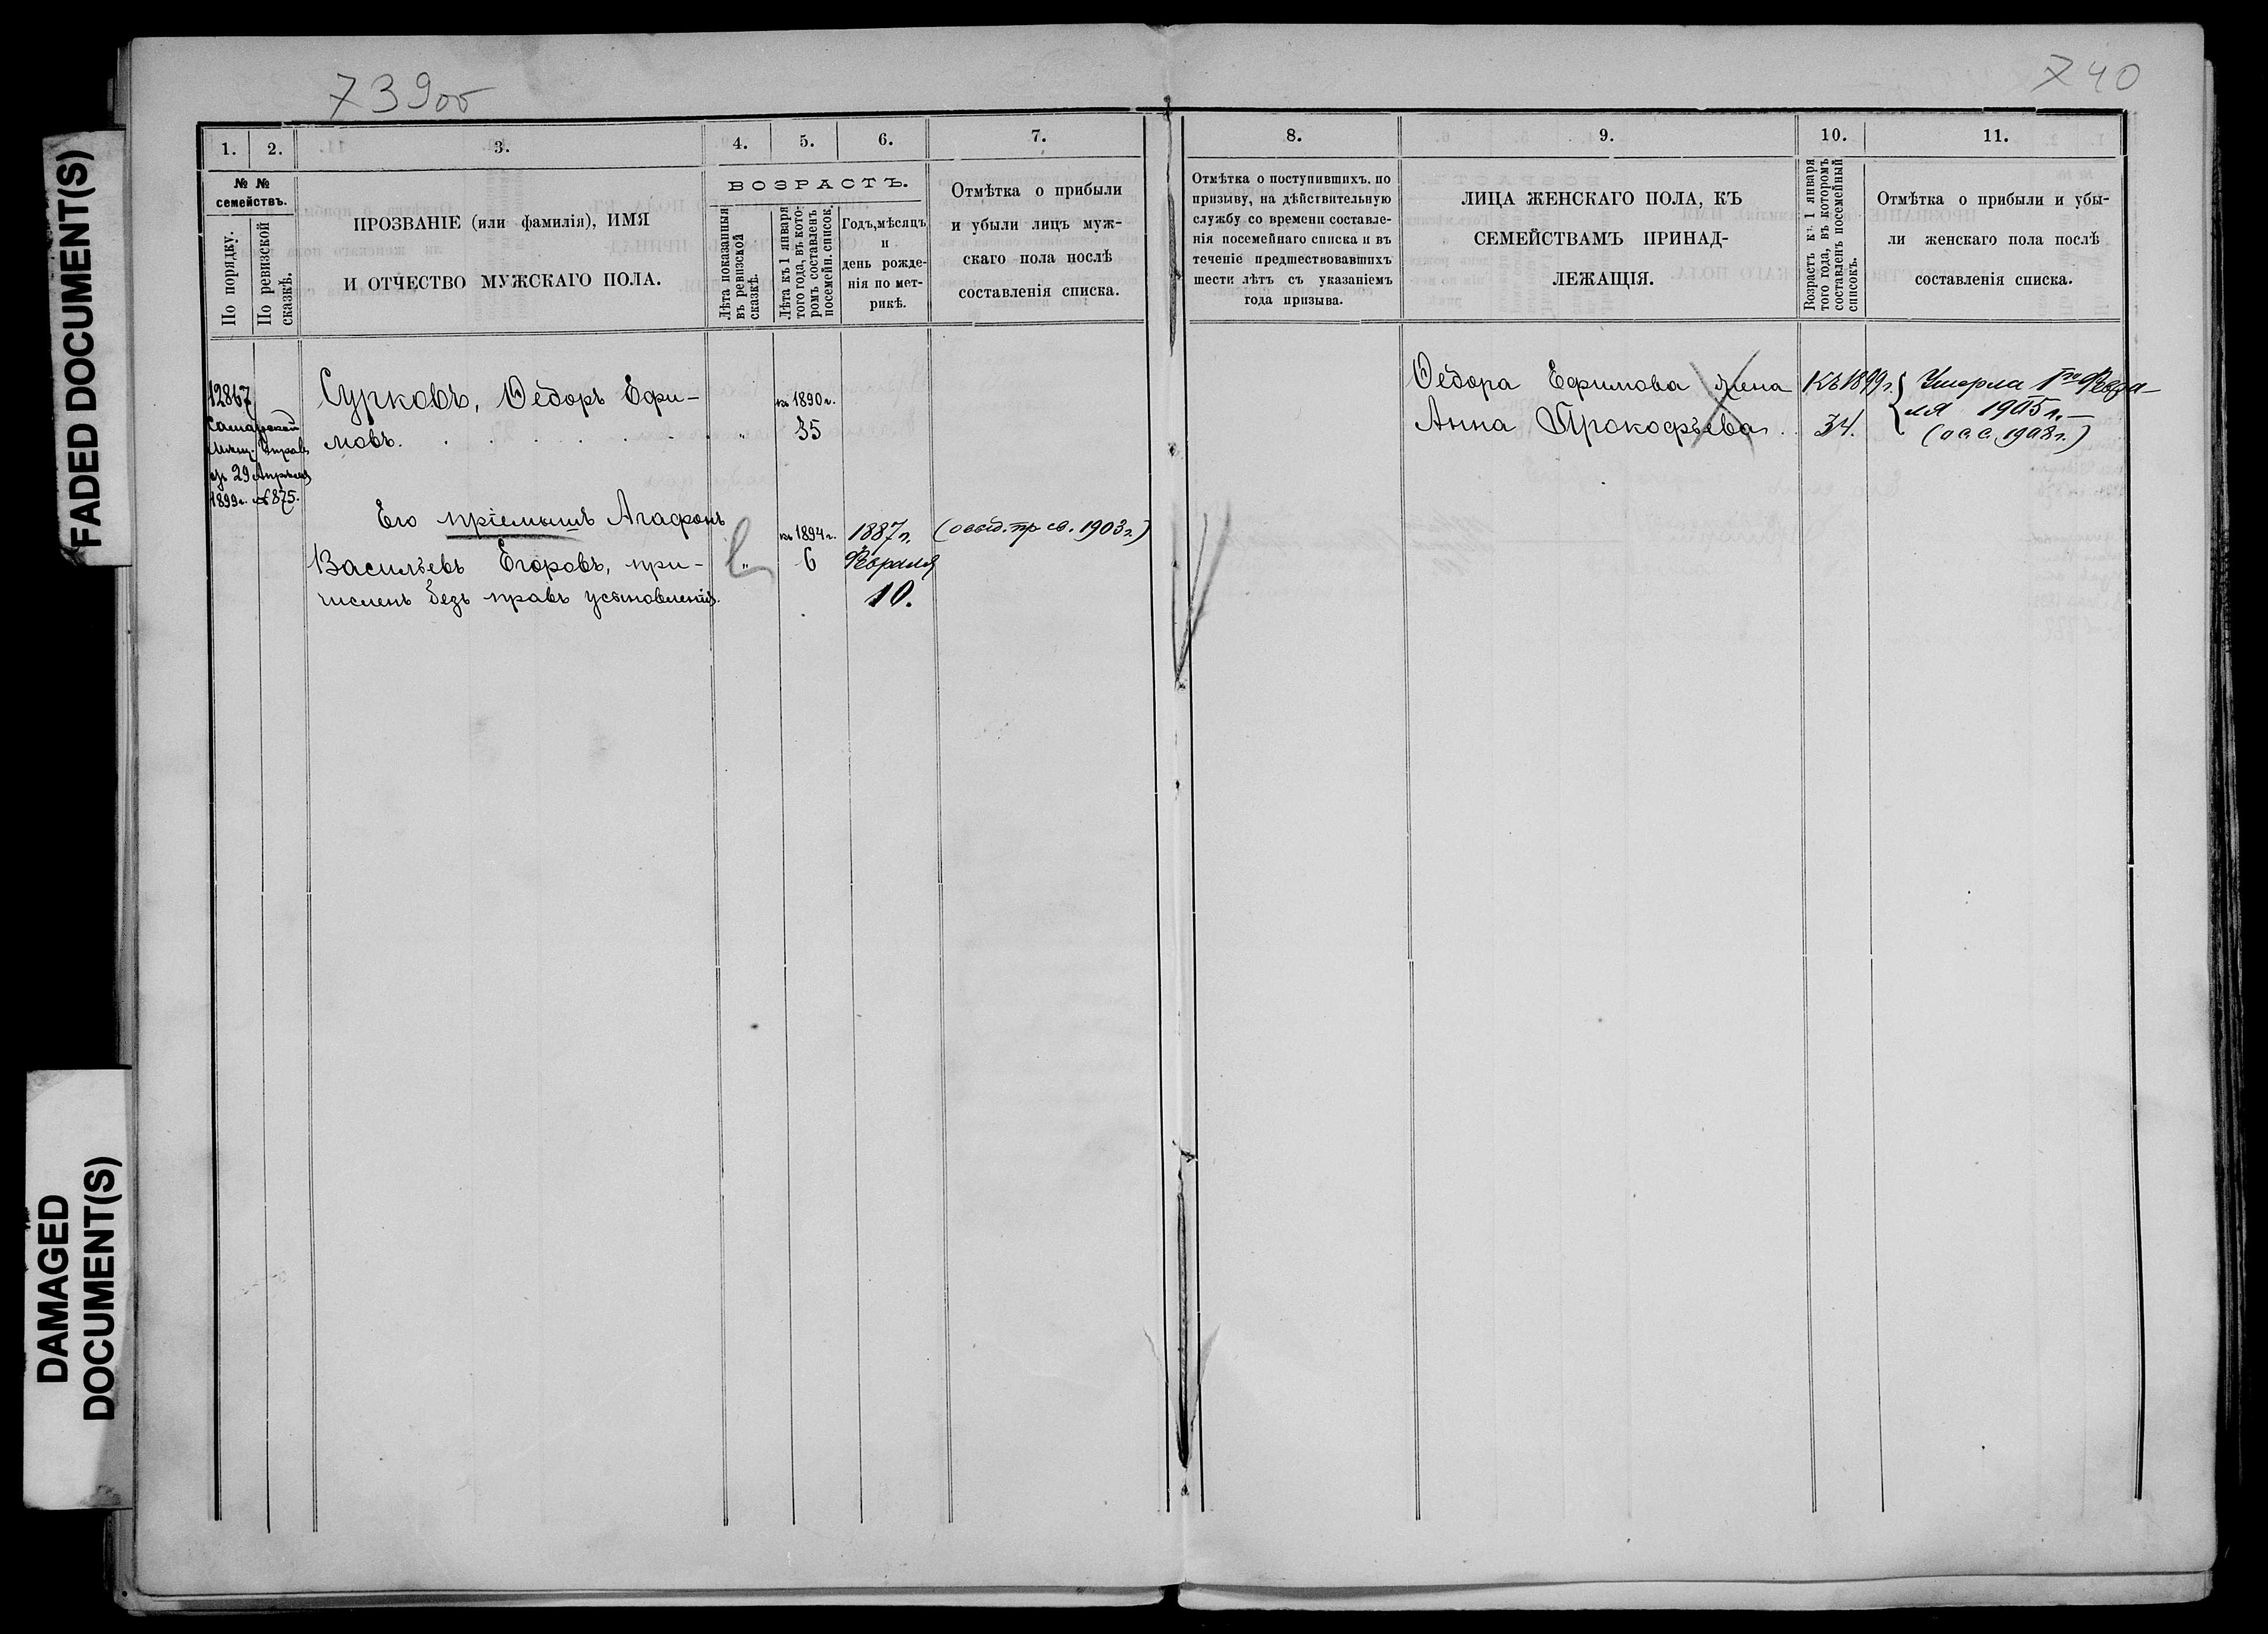 739об
740
FADED DOCUMENT(S)
DAMAGED
DOCUMENT(S)
1.
2.
3.
4.
5.
6.
7.
№ №
семействъ.
По порядку.
По ревизской
сказкѣ.
ПРОЗВАНІЕ (или фамилія), ИМЯ
И ОТЧЕСТВО МУЖСКАГО ПОЛА.
ВОЗРАСТЪ.
Лѣта показанныя
въ ревизской
сказкѣ.
Лѣта къ 1 января
того года, въ кото-
ромъ составленъ
посемейн. список.
Годъ, мѣсяцъ
и
день рожде-
нія по мет-
рикѣ.
Отмѣтка о прибыли
и убыли лицъ муж-
скаго пола послѣ
составленія списка.
12867
Самарской
Мѣщ. Управ.
отъ 29 Апрѣля
1899г. № 875.
Сурковъ, Ѳедоръ Ефи-
мовъ. . . . . . . . "
къ 1890г.
35
Его пріемышъ Агафонъ
Васильевъ Егоровъ, при-
численъ безъ правъ усыновленія.
"
къ 1894г.
6
1887г.
Февраля
10.
(освид. пр. св. 1903г.)
8.
9.
10.
11.
Отмѣтка о поступившихъ, по
призыву, на дѣйствительную
службу со времени составле-
нія посемейнаго списка и въ
теченіе предшествовавшихъ
шести лѣтъ съ указаніемъ
года призыва.
ЛИЦА ЖЕНСКАГО ПОЛА, КЪ
СЕМЕЙСТВАМЪ ПРИНАД-
ЛЕЖАЩІЯ.
Возрастъ къ 1 января
того года, въ которомъ
составленъ посемейный
списокъ.
Отмѣтка о прибыли и убы-
ли женскаго пола послѣ
составленія списка.
Ѳедора Ефимова жена
Анна Прокофьева .
Къ 1899г.
34.
Умерла 1го Февра-
ля 1905г. —
1908г.)